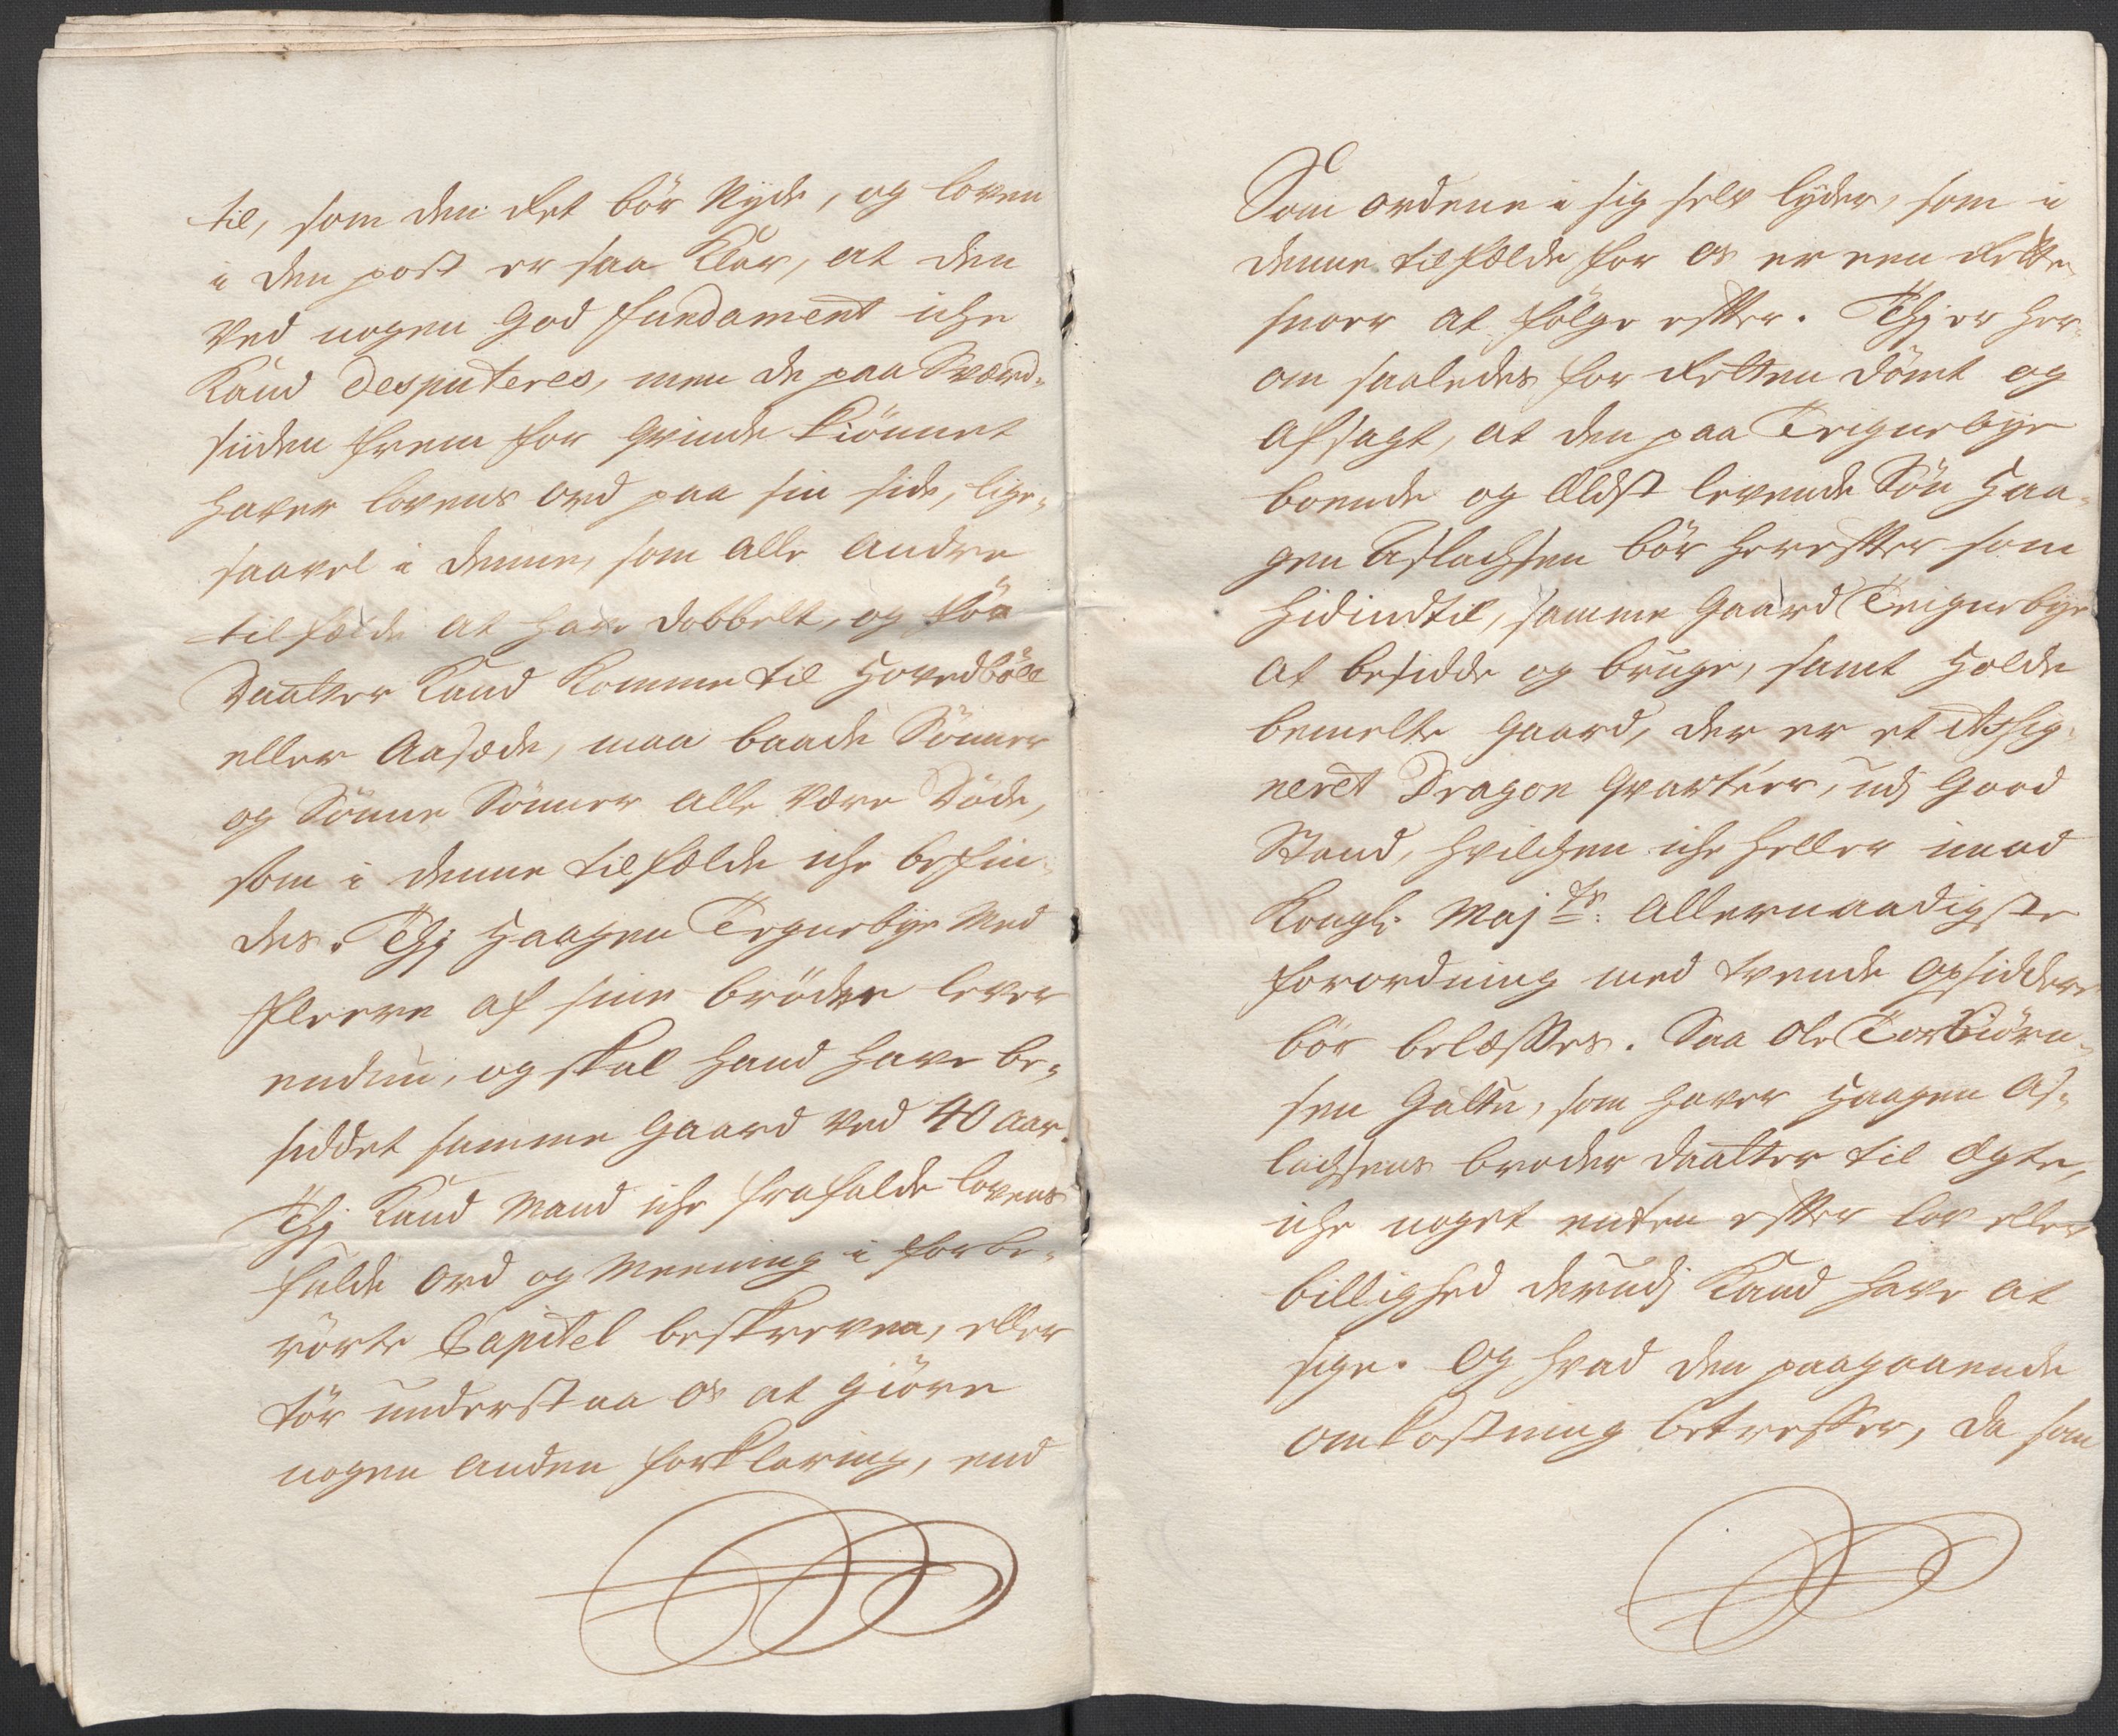 til, som den det bør Nyde, og loven
i den post er saa Klar, at den
Ved nogen god fundament iche
Kand desputeres, men de paa Sværd-
siiden frem for qvinde Kiönnet
haver lovens ord paa sin side, lige-
saavel i denne, som alle andre
tilfælde at have dobbelt, og før
Daatter Kand Komme til Hovedböll
eller Aasæde, maa baade Sönner
og Sönne Sönner alle være Döde,
som i denne tilfælde iche befin-
des. Thj Haagen Teignebye Med
fleere af sine brödre lever
endnu, og skal hand have be-
siddet samme gaard ved 40 aar.
Thj Kand Mand iche frafalde lovens
fulde ord og Meening i forbe-
rörte Capitel beskreven, eller
tör understaa os at giöre
nogen anden forklaring, end
Som ordene i sig selv lyder, som i
denne tilfælde for os er een Rette
snoer at fölge effter. Thj er her-
om saaledes for Retten dömt og
afsagt, at den paa Teignebye
boende og Eldst levende Sön Haa-
gen Aslachsen bör hereffter som
hidindtil, samme Gaard Teignebye
at besidde og bruge, samt holde
bemelte gaard, der er et Assig-
neret Dragon qvarteer, udj good
Stand, hvilchen iche heller imod
Kongl: Maj ts: allernaadigste
forordning med tvende opsiddere
bör belæsses. Saa Ole Torbiörn-
sen Galten, som haver Haagen As-
lachsens broder daatter til Ægte,
iche noget enten effter lov eller
billighed derudj Kand have at
sige. Og hvad den paagaaende
omkostning betreffer, da som